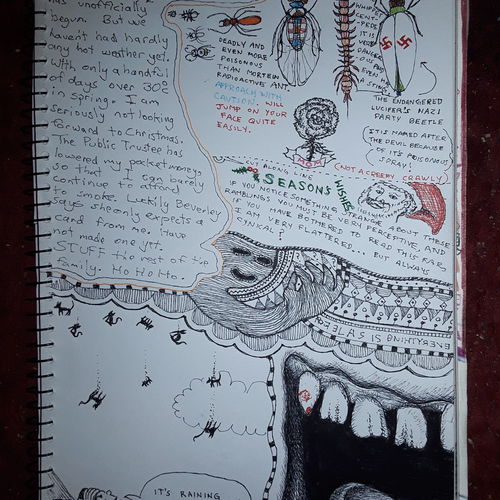 has unofficially
begun. But we
haven't had hardly
any hot weather yet.
With only a handful
of days over 30°
in Spring. I am
seriously not looking
forward to Christmas.
The Public Trustee has
lowered my pocket money
so that I can barely
continue to afford
to smoke. Luckily Beverley
says she only expects a
card from me. Have
not made one yet.
STUFF the rest of the
family. Ho Ho Ho.
DEADLY AND
EVEN MORE
POISONOUS
THAN MORTEIN
RADIOACTIVE ANT.
APPROACH WITH
CAUTION. WILL
JUMP ON YOUR
FACE QUITE
EASILY.
WHIP
CENT-
PEDE.
IT IS
VERY
DANGER-
OUS.
EVEN
A STING
THE ENDANGERED
LUCIFER'S NAZI
PARTY BEETLE
(IT IS NAMED AFTER
THE DEVIL BECAUSE
OF IT'S POISONOUS
SPRAY)
(NOT A CREEPY CRAWLY)
CUT ALONG LINE
SEASONS WISHES
IF YOU NOTICE SOMETHING STRANGE ABOUT THESE
RAMBLINGS YOU MUST BE VERY PERCEPTIVE, AND
IF YOU HAVE BOTHERED TO READ THIS FAR
I AM VERY FLATTERED... BUT ALWAYS
CYNICAL!
IT'S RAINING